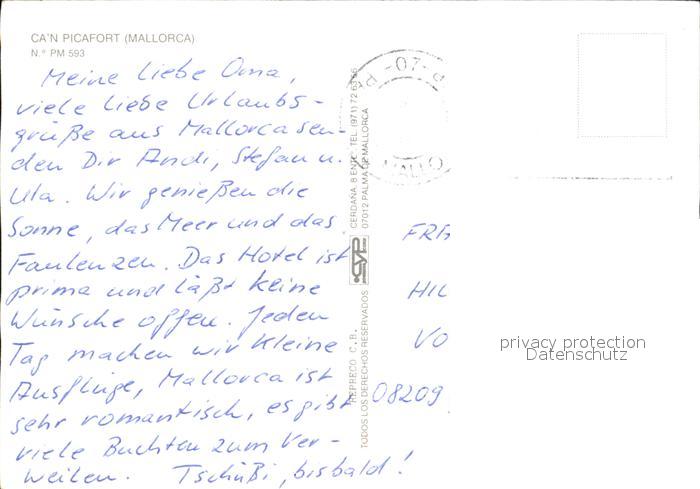 CA'N PICAFORT (MALLORCA)
N.° PM 593
Meine liebe Oma,
viele liebe Urlaubs-
grüße aus Mallorca sen-
den Dir Andi, Stefan u.
Ula. Wir genießen die
Sonne, das Meer und das
Faulenzen. Das Hotel ist
prima und läßt keine
Wünsche offen. Jeden
Tag machen wir kleine
Ausflüge, Mallorca ist
sehr romantisch, es gibt
viele Buchten zum Ver-
weilen. Tschüßi, bis bald!
REPRECO C.B.
TODOS LOS DERECHOS RESERVADOS
CERDAÑA, 8 ENTL° TEL. (971) 72 63 66
07012 PALMA DE MALLORCA
-07-
MALLO
FRA
HIL
VO
08209
privacy protection
Datenschutz